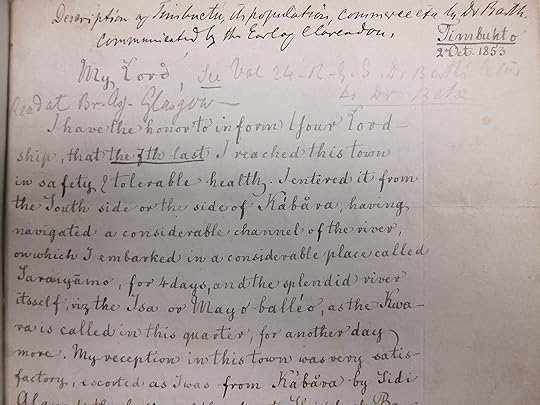 Description of Timbuctu, its population, commerce &ca by Dr Barth.
communicated by the Earl of Clarendon.
Timbukto
2 Oct. 1853
My Lord, See Vol 24 R.G.S. Dr Barth's letters
to Dr Beke
Read at Br. As. Glasgow
I have the honor to inform Your Lord-
ship, that the 7th last I reached this town
in safety & tolerable health. I entered it from
the South side or the side of Kábăra, having
navigated a considerable channel of the river,
on which I embarked in a considerable place called
Saraiyāmo, for 4 days, and the splendid river
itsself, viz the Isa or Mayo balléo, as the Kwa-
ra is called in this quarter, for another day
more. My reception in this town was very satis-
factory, escorted as I was from Kábăra by Sidi